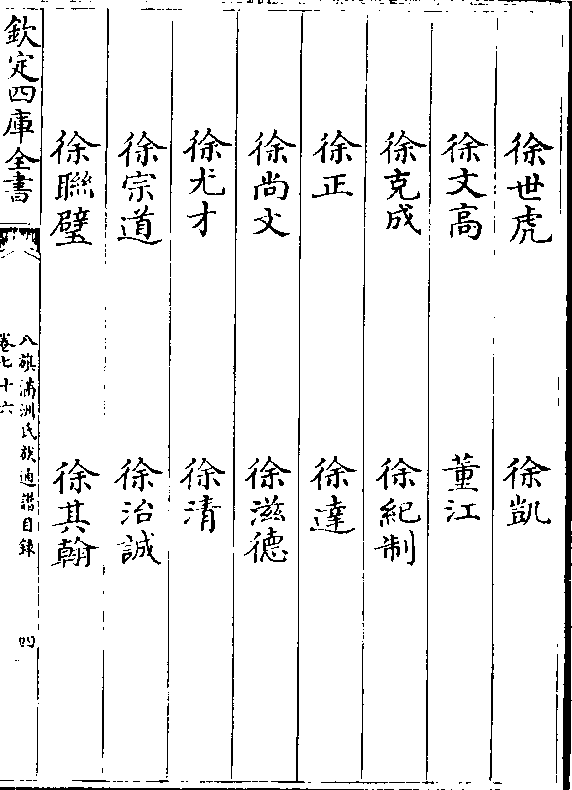 徐世虎 徐凱
徐文高 董江
徐克成 徐紀制
徐正 徐達
徐尚文 徐滋德
徐尤才 徐清
徐宗道 徐治誠
徐聯璧 徐其翰
欽定四庫全書
八旗滿洲氏族通譜目錄
卷七十六
四